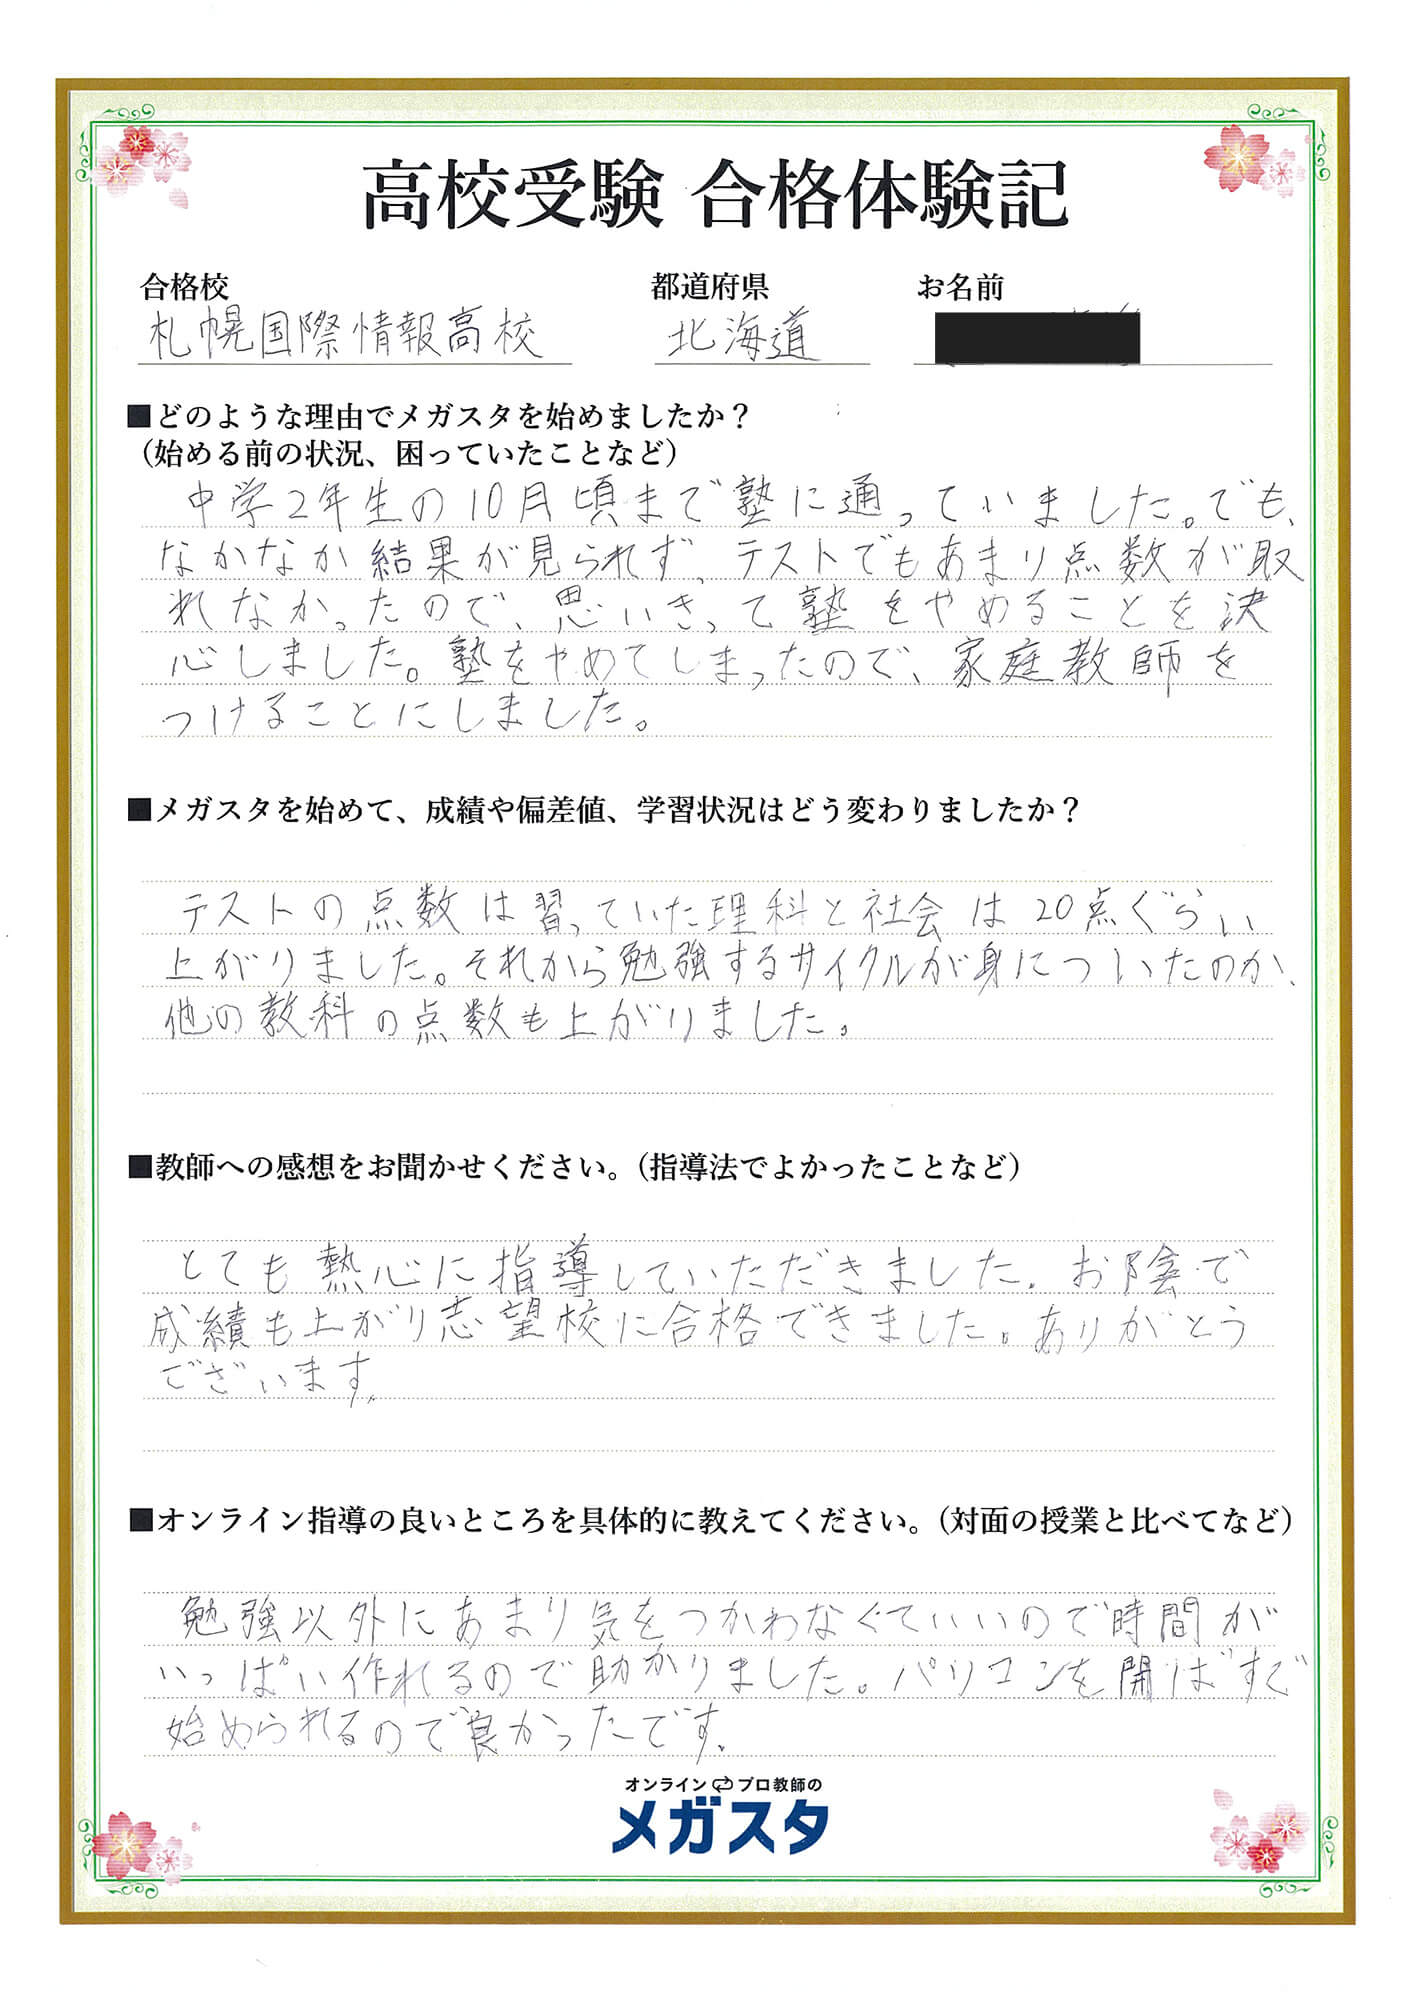 高校受験 合格体験記
合格校 都道府県 お名前
札幌国際情報高校 北海道
■どのような理由でメガスタを始めましたか？
（始める前の状況、困っていたことなど）
中学2年生の10月頃まで塾に通っていました。でも、
なかなか結果が見られず、テストでもあまり点数が取
れなかったので、思いきって塾をやめることを決
心しました。塾をやめてしまったので、家庭教師を
つけることにしました。
■メガスタを始めて、成績や偏差値、学習状況はどう変わりましたか？
テストの点数は習っていた理科と社会は20点ぐらい
上がりました。それから勉強するサイクルが身についたのか、
他の教科の点数も上がりました。
■教師への感想をお聞かせください。（指導法でよかったことなど）
とても熱心に指導していただきました。お陰で
成績も上がり志望校に合格できました。ありがとう
ございます。
■オンライン指導の良いところを具体的に教えてください。（対面の授業と比べてなど）
勉強以外にあまり気をつかわなくていいので時間が
いっぱい作れるので助かりました。パソコンを開けばすぐ
始められるので良かったです。
オンライン プロ教師の
メガスタ